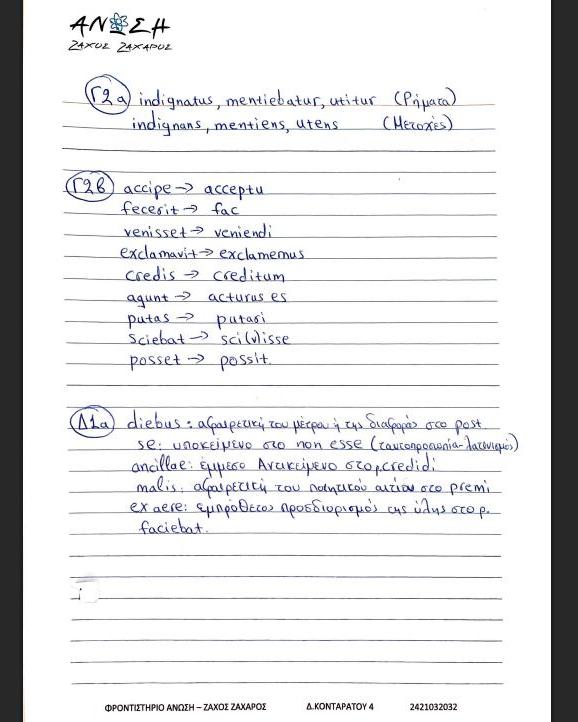 ΑΝΩΣΗ
ΖΑΧΟΣ ΖΑΧΑΡΟΣ
Γ2α indignatus, mentiebatur, utitur (Ρήματα)
indignans, mentiens, utens (Μετοχές)
Γ2β accipe → acceptu
fecerit → fac
venisset → veniendi
exclamavit → exclamemus
credis → creditum
agunt → acturus es
putas → putari
Sciebat → sci(v)isse
posset → possit.
Δ1α diebus: αφαιρετική του μέτρου ή της διαφοράς στο post
se: υποκείμενο στο non esse (ταυτοπροσωπία-λατινισμός)
ancillae: έμμεσο Αντικείμενο στο ρ. credidi
malis: αφαιρετική του ποιητικού αιτίου στο premi
ex aere: εμπρόθετος προσδιορισμός της ύλης στο ρ.
faciebat.
ΦΡΟΝΤΙΣΤΗΡΙΟ ΑΝΩΣΗ – ΖΑΧΟΣ ΖΑΧΑΡΟΣ Δ.ΚΟΝΤΑΡΑΤΟΥ 4 2421032032